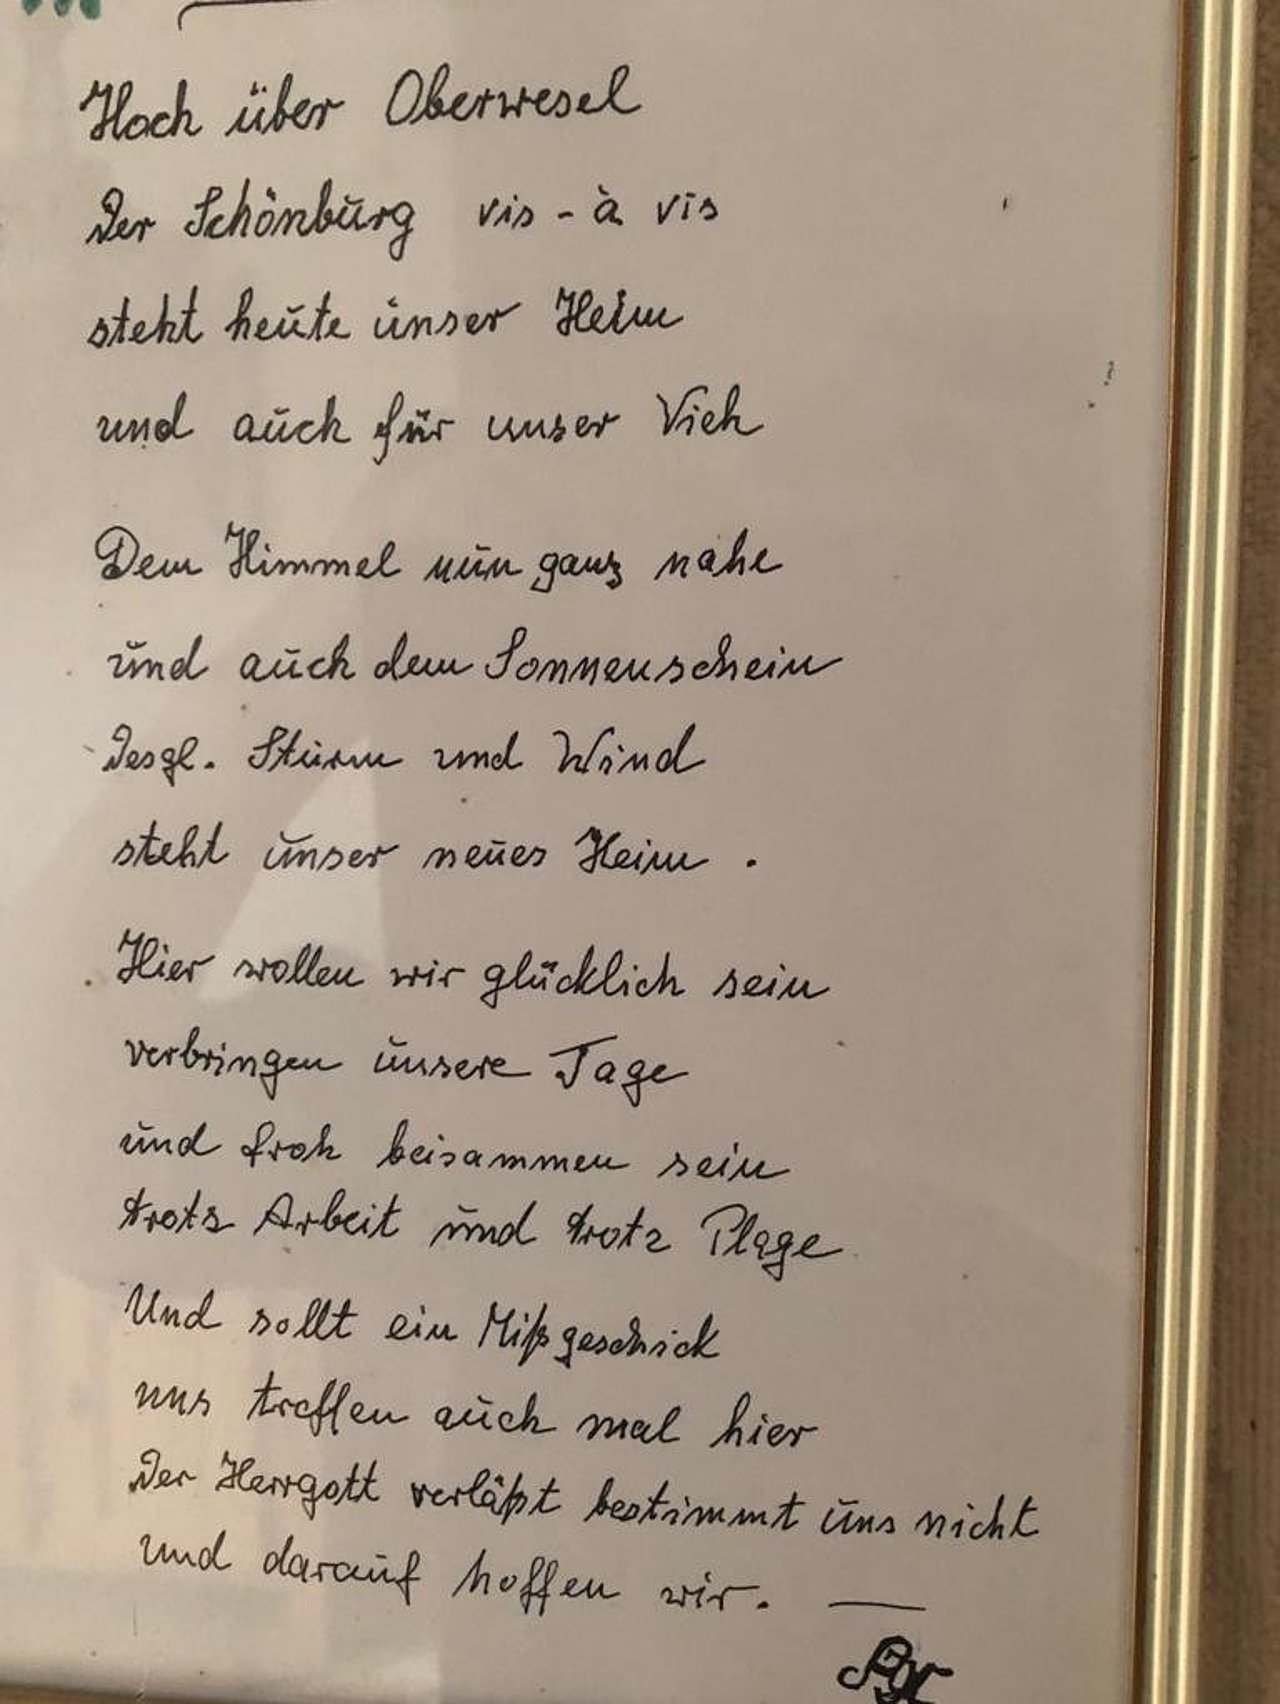 Hoch über Oberwesel
Der Schönburg vis-à vis
steht heute unser Heim
und auch für unser Vieh
Dem Himmel nun ganz nahe
und auch dem Sonnenschein
Desgl. Sturm und Wind
steht unser neues Heim.
Hier wollen wir glücklich sein
verbringen unsere Tage
und froh beisammen sein
trotz Arbeit und trotz Plage
Und sollt ein Mißgeschick
uns treffen auch mal hier
Der Herrgott verläßt bestimmt uns nicht
und darauf hoffen wir. —